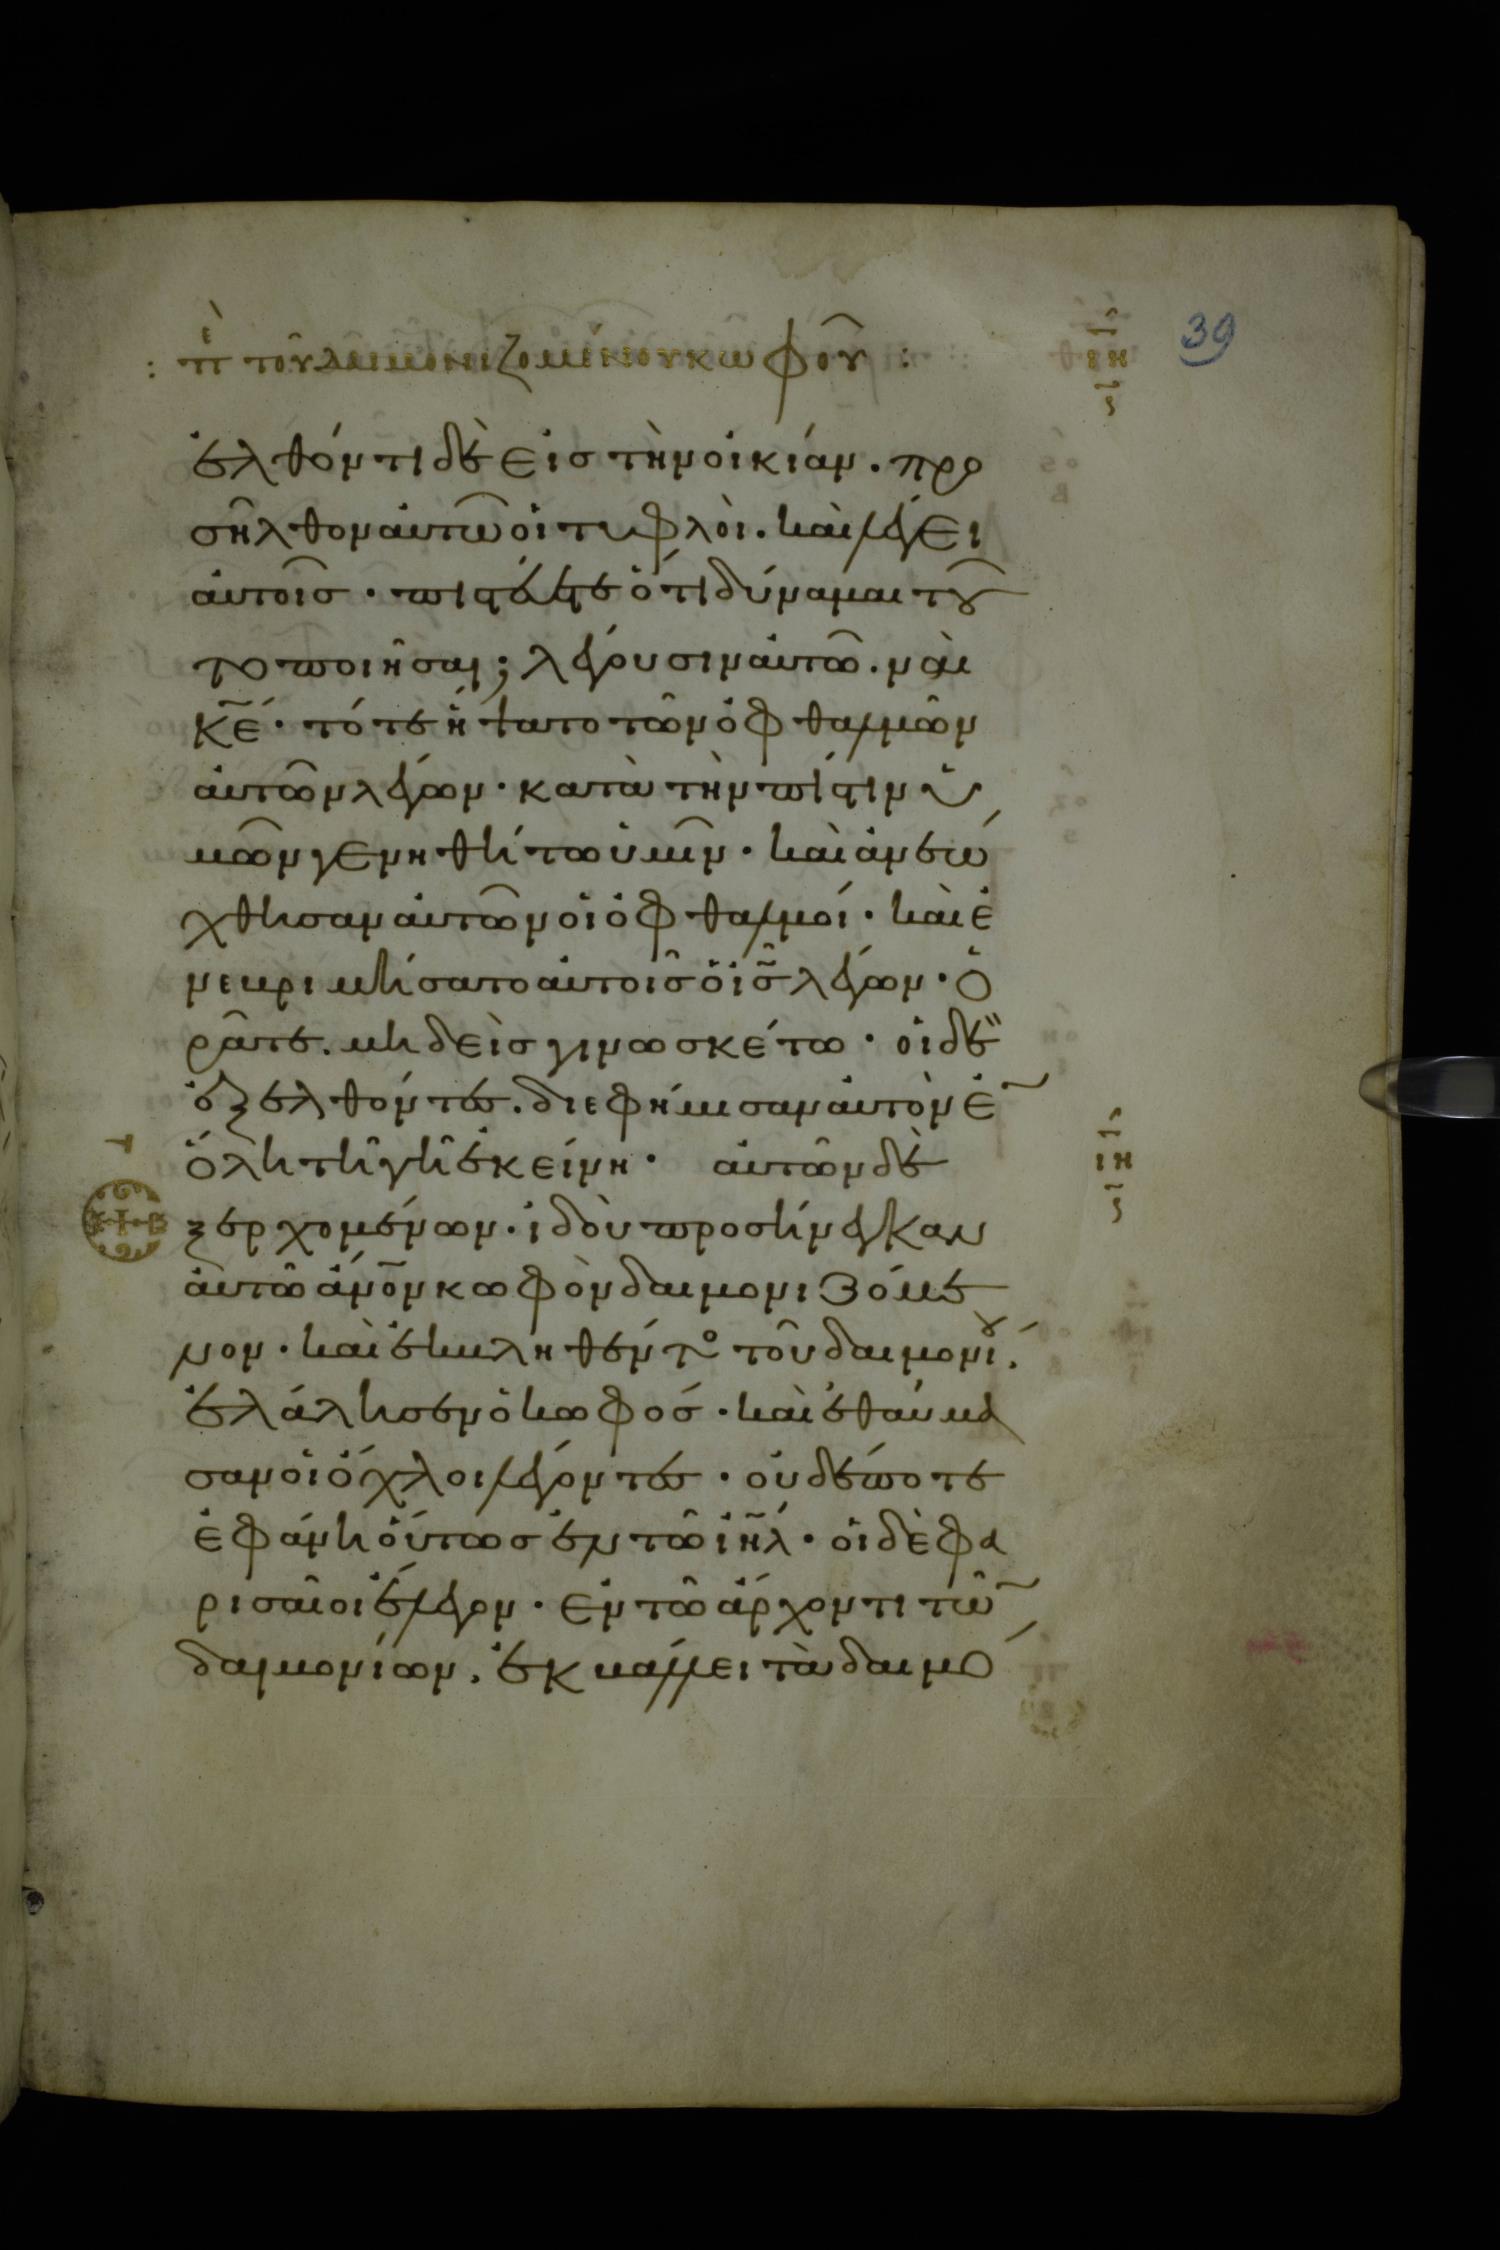 : πὲ τοῦ δαιμονιζομένου κωφοῦ :
39
ἐλθόντι δὲ εἰς τὴν οἰκίαν. προ
σῆλθον αὐτῶ οἱ τυφλοὶ. καὶ λέγει
αὐτοῖς · πιστεύετε ὅτι δύναμαι τοῦ
το ποιῆσαι; λέγουσιν αὐτῶ. ναὶ
κ̅ε̅ · τότε ἥψατο τῶν ὀφθαλμῶν
αὐτῶν λέγων · κατὰ τὴν πίστιν ὑ
μῶν γενηθήτω ὑμῖν · καὶ ἀνεώ
χθησαν αὐτῶν οἱ ὀφθαλμοί · καὶ ἐ
νεβριμήσατο αὐτοῖς ὁ ι̅ς̅ λέγων · ὁ
ρᾶτε. μηδεὶς γινωσκέτω · οἱ δὲ
ἐξελθόντες. διεφήμισαν αὐτὸν ἐ̅
ὅλη τῆ γῆ ἐκείνη · αὐτῶν δὲ ἐ
ξερχομένων · ἰδοὺ προσήνεγκαν
αὐτῶ ἄν̅ο̅ν κωφὸν δαιμονιζόμε
νον · καὶ ἐκβληθέντος τοῦ δαιμονίου.
ἐλάλησεν ὁ κωφός · καὶ ἐθαύμα
σαν οἱ ὄχλοι λέγοντες · οὐδέποτε
ἐφάνη οὕτως ἐν τῶ ἰη̅λ · οἱ δὲ φα
ρισαῖοι ἔλεγον · ἐν τῶ ἄρχοντι τῶ̅
δαιμονίων. ἐκβάλλει τὰ δαιμό